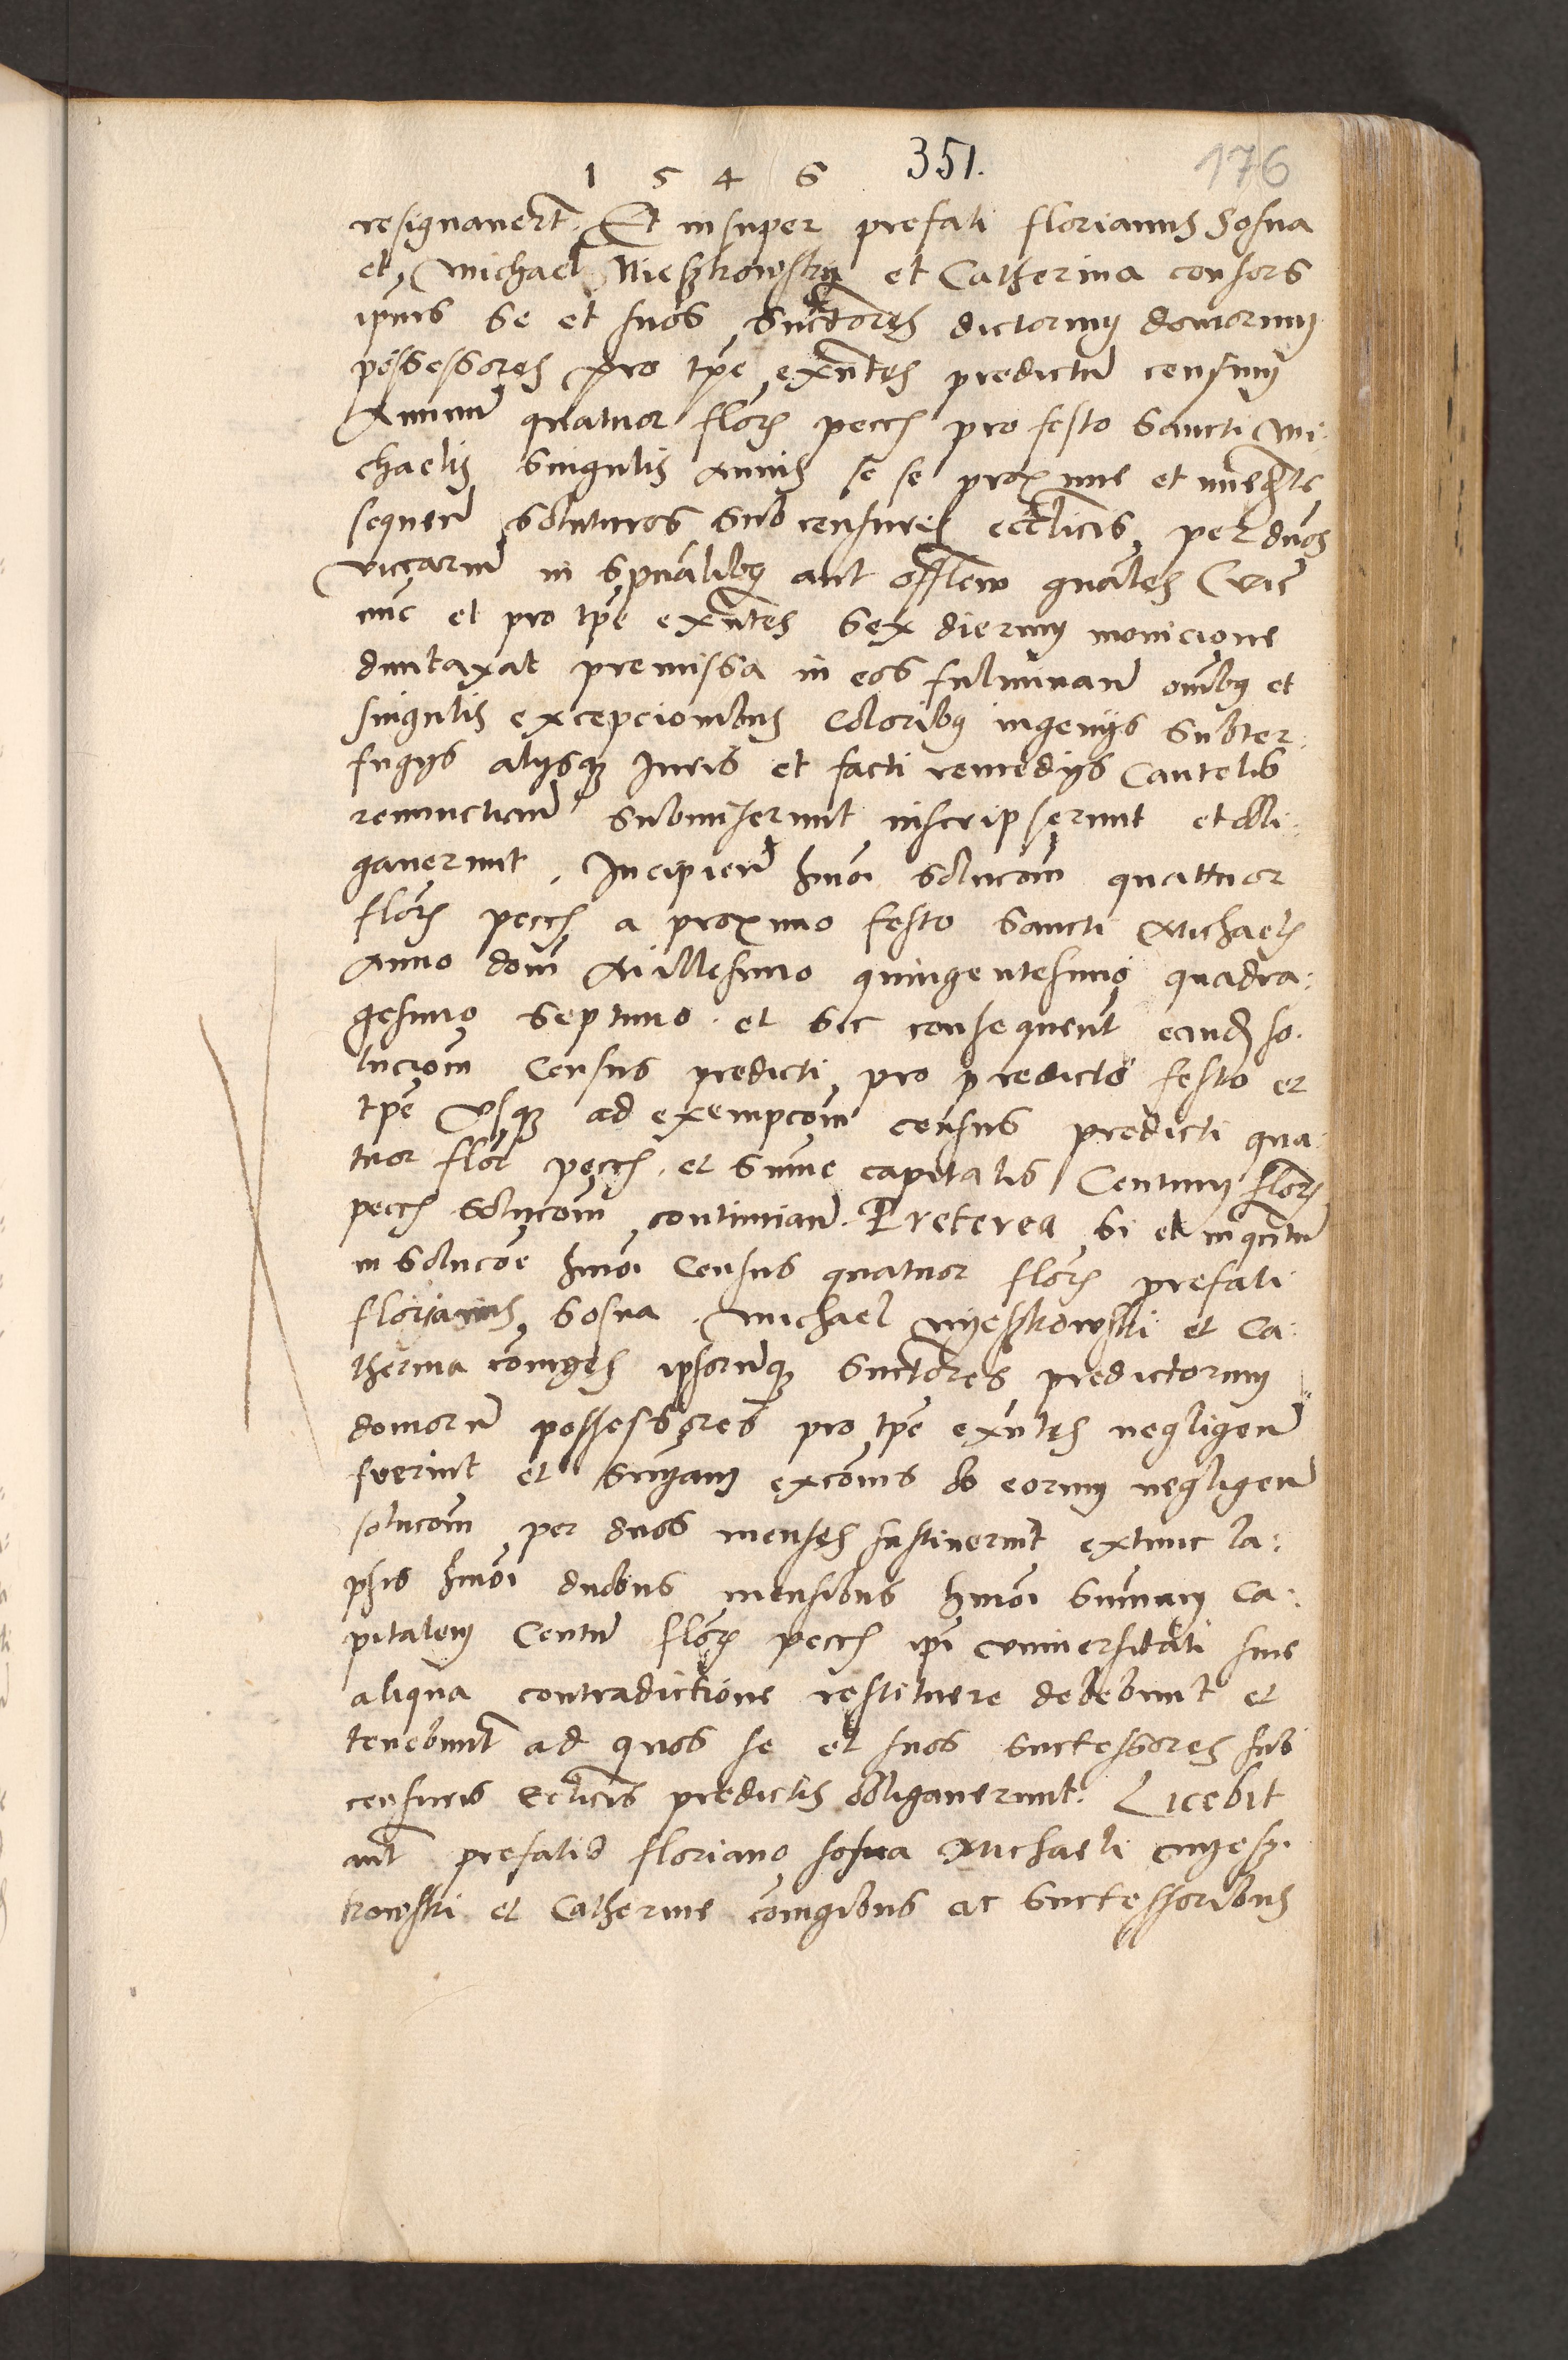 1 5 4 6 351. 176
resignaverᷠt. Et insuper prefati florianus Sosna
et Michael Nieszkowsky et Catherina consors
ipius se et suos succtores dictorum domorum
possessores pro tpe exntes predictum censum
Annuum quatuor florꝭ pecc pro festo Sancti Mi:
chaelis singulis Annis se se proxime et immediate
sequenꝭ soluturos sub censuris ecclicis per dnos
viccarium in spualibꝰ aut offlem gnales Crac
nuc et pro tpe exntes sex dierum monicione
duntaxat premissa in eos fulminanꝭ omibꝰ et
singulis excepcionibus Coloribꝰ ingenys subter:
fugys alysqꝫ Juris et facti remedys Cautelis
renunctianꝭ submiserunt inscripserunt et obli:
gaverunt. Incipienꝭ hmoi solucom quattuor
florꝭ pecc a proximo festo Sancti Michaelꝭ
Anno dom Millesimo quingentesimo quadra:
gesimo septimo. et sic consequent eandꝫ so:
lucionem Census predicti pro predicto festo et
tpe Usqꝫ ad exempcom census predicti qua:
tuor flor pecc et summe capitalis Centum florꝭ
pecc solucom continuanꝭ. Preterea si et inqntum
in solucoe hmoi Census quatuor florꝭ prefati
florianus Sosna. Michael Nyeszkowski et Ca:
therina coniuges ipsorumqꝫ succtores predictorum
domorum possessores pro tpe exntes negligenꝭ
fuerint et sniam excomis ob eorum negligenꝭ
solucom per duos menses sustinerint extunc la:
psis hmoi duobus mensibus hmoi summam Ca:
pitalem Centum florꝭ pecc ipi universitati sine
aliqua contradictione restituere debebunt et
tenebunt ad quos se et suos successores sub
censuris ecclicis predictis obligaverunt. Licebit
aut prefatis floriano sosna Michaeli Nyesz:
kowski et Catherine coniugibus ac successoribus